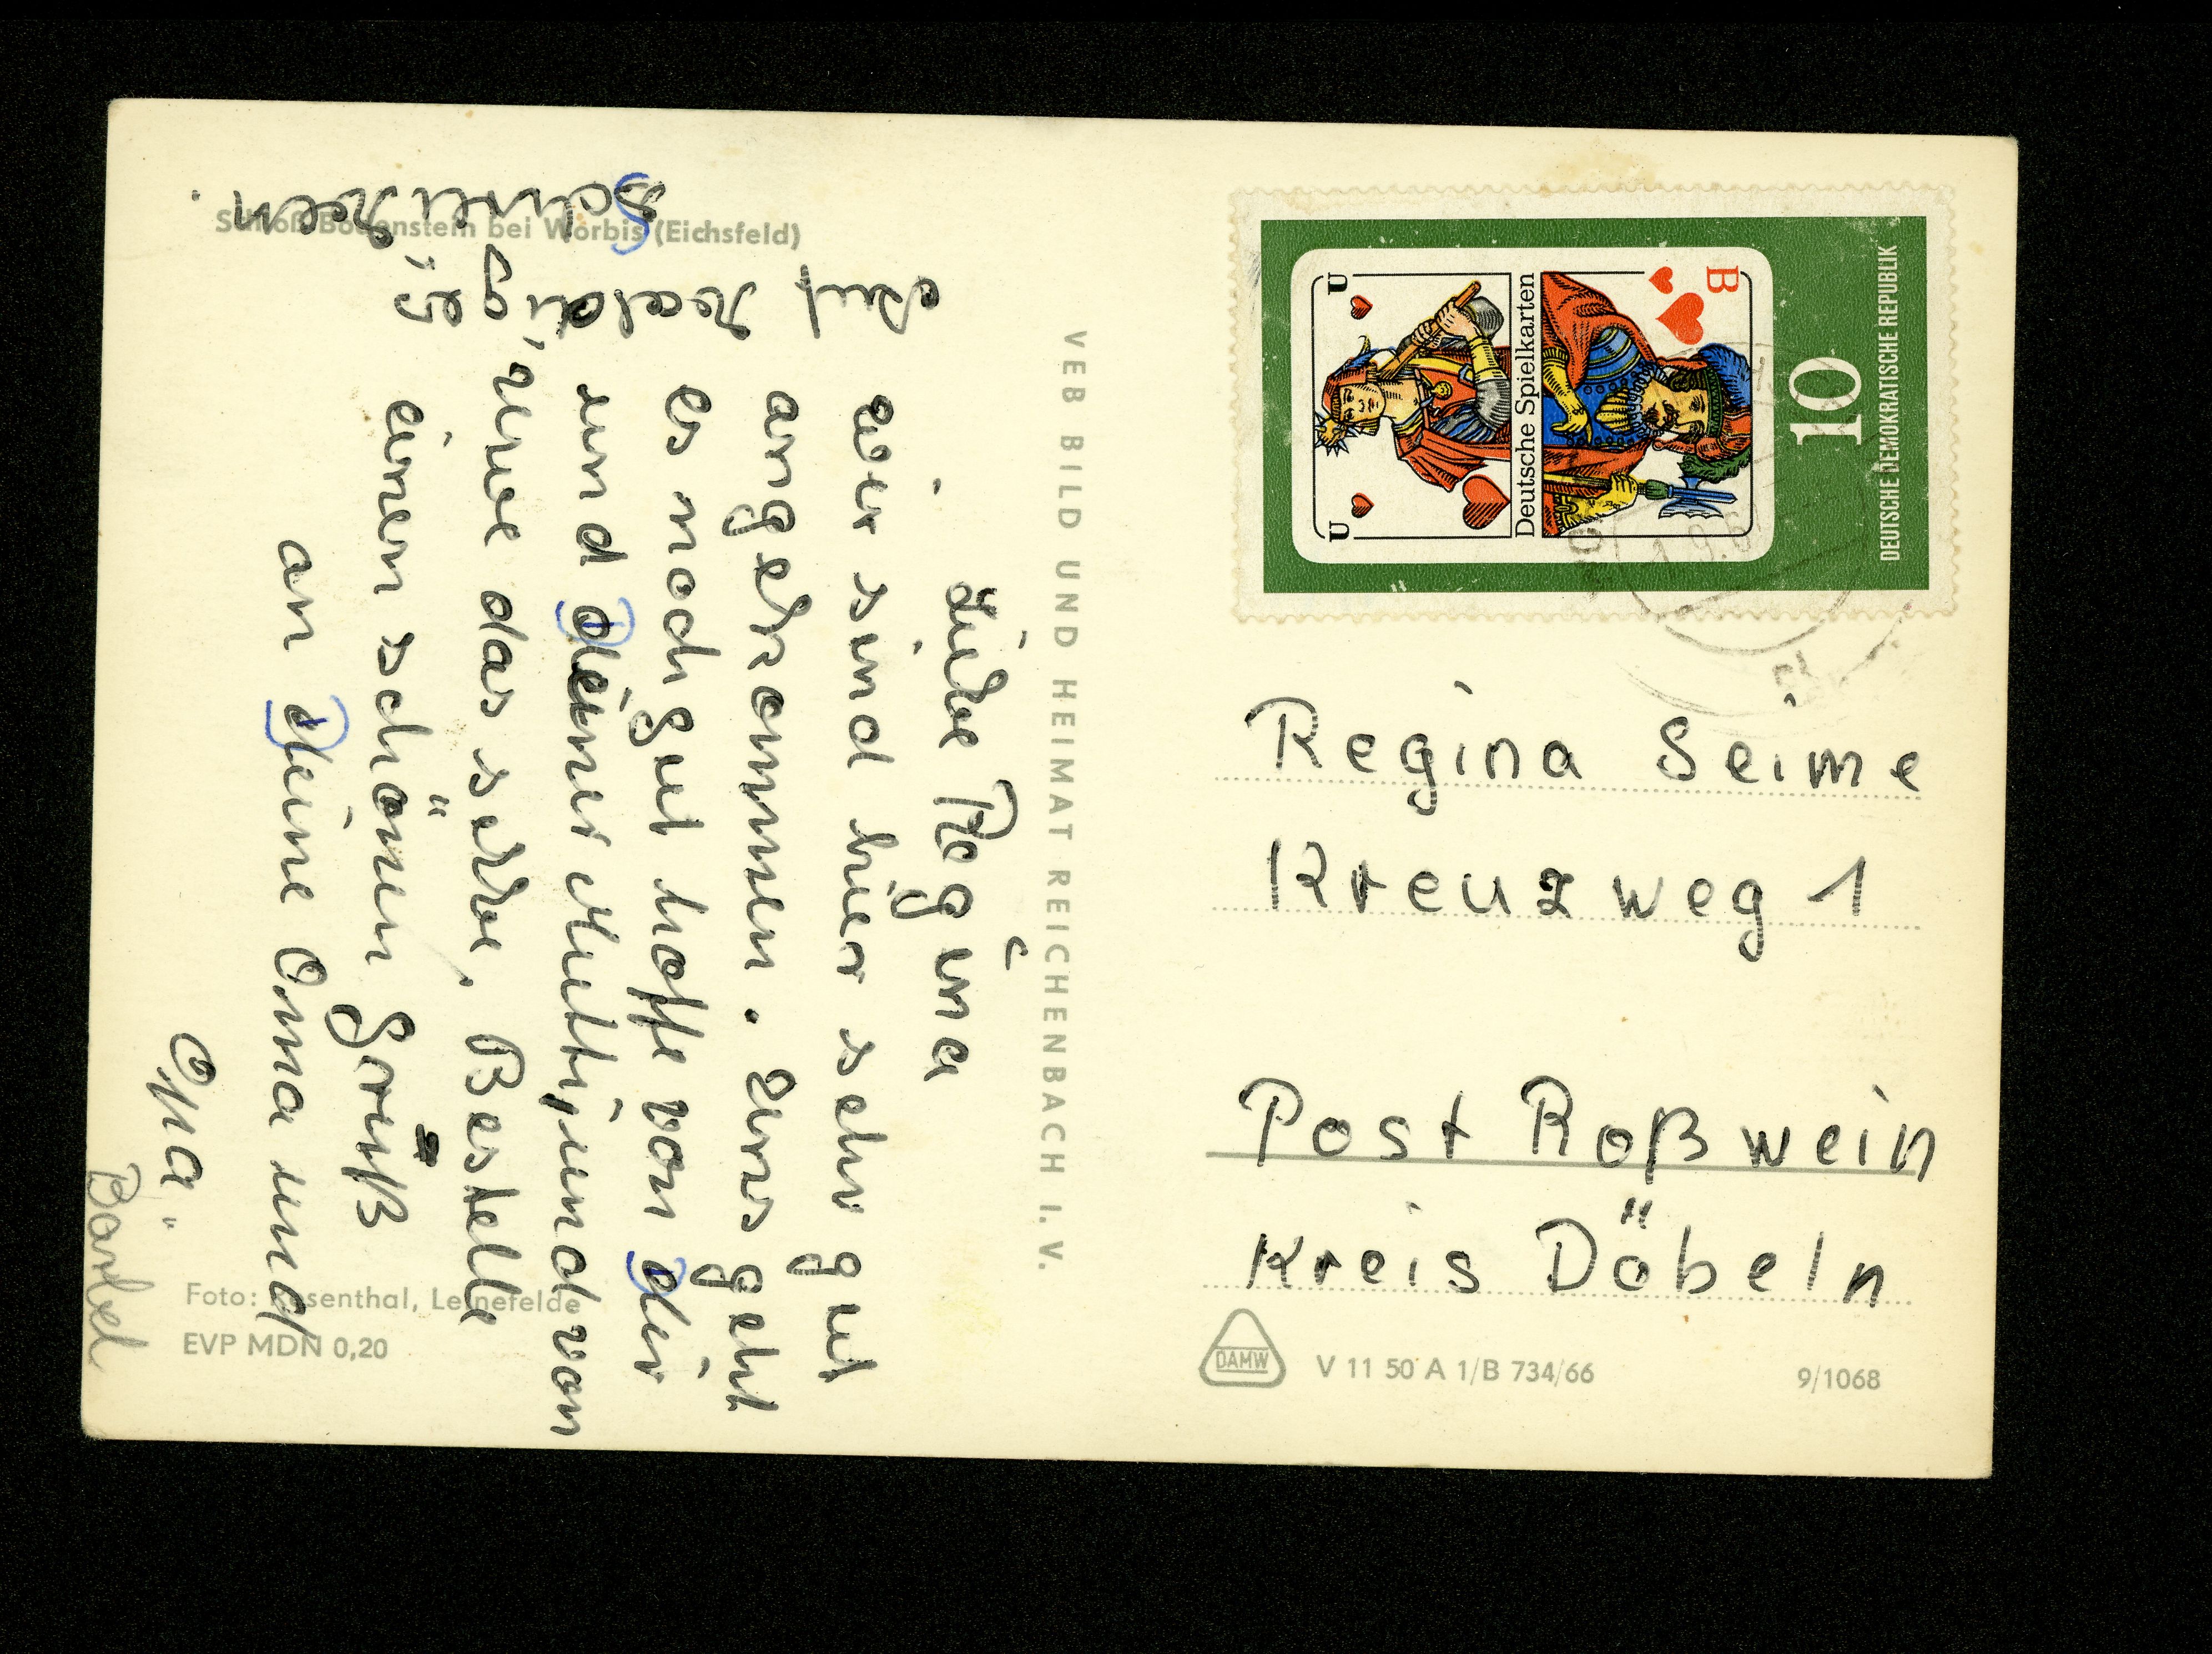 Liebe Regina
wir sind hier sehr gut
angekommen. Uns geht
es noch gut hoffe von dir
und deiner Mutti, und von
Uwe das selbe. Bestelle
einen schönen Gruß
an deine Oma und
Opa.
Bärbel
Auf baldi,
ges
Schreiben.
Schloß Bodenstein bei Worbis (Eichsfeld)
Foto: Rosenthal, Leinefelde
EVP MDN 0,20
VEB BILD UND HEIMAT REICHENBACH I. V.
DEUTSCHE DEMOKRATISCHE REPUBLIK
10
Deutsche Spielkarten
U
U
B
Regina Seime
Kreuzweg 1
Post Roßwein
Kreis Döbeln
DAMW
V 11 50 A 1/B 734/66
9/1068